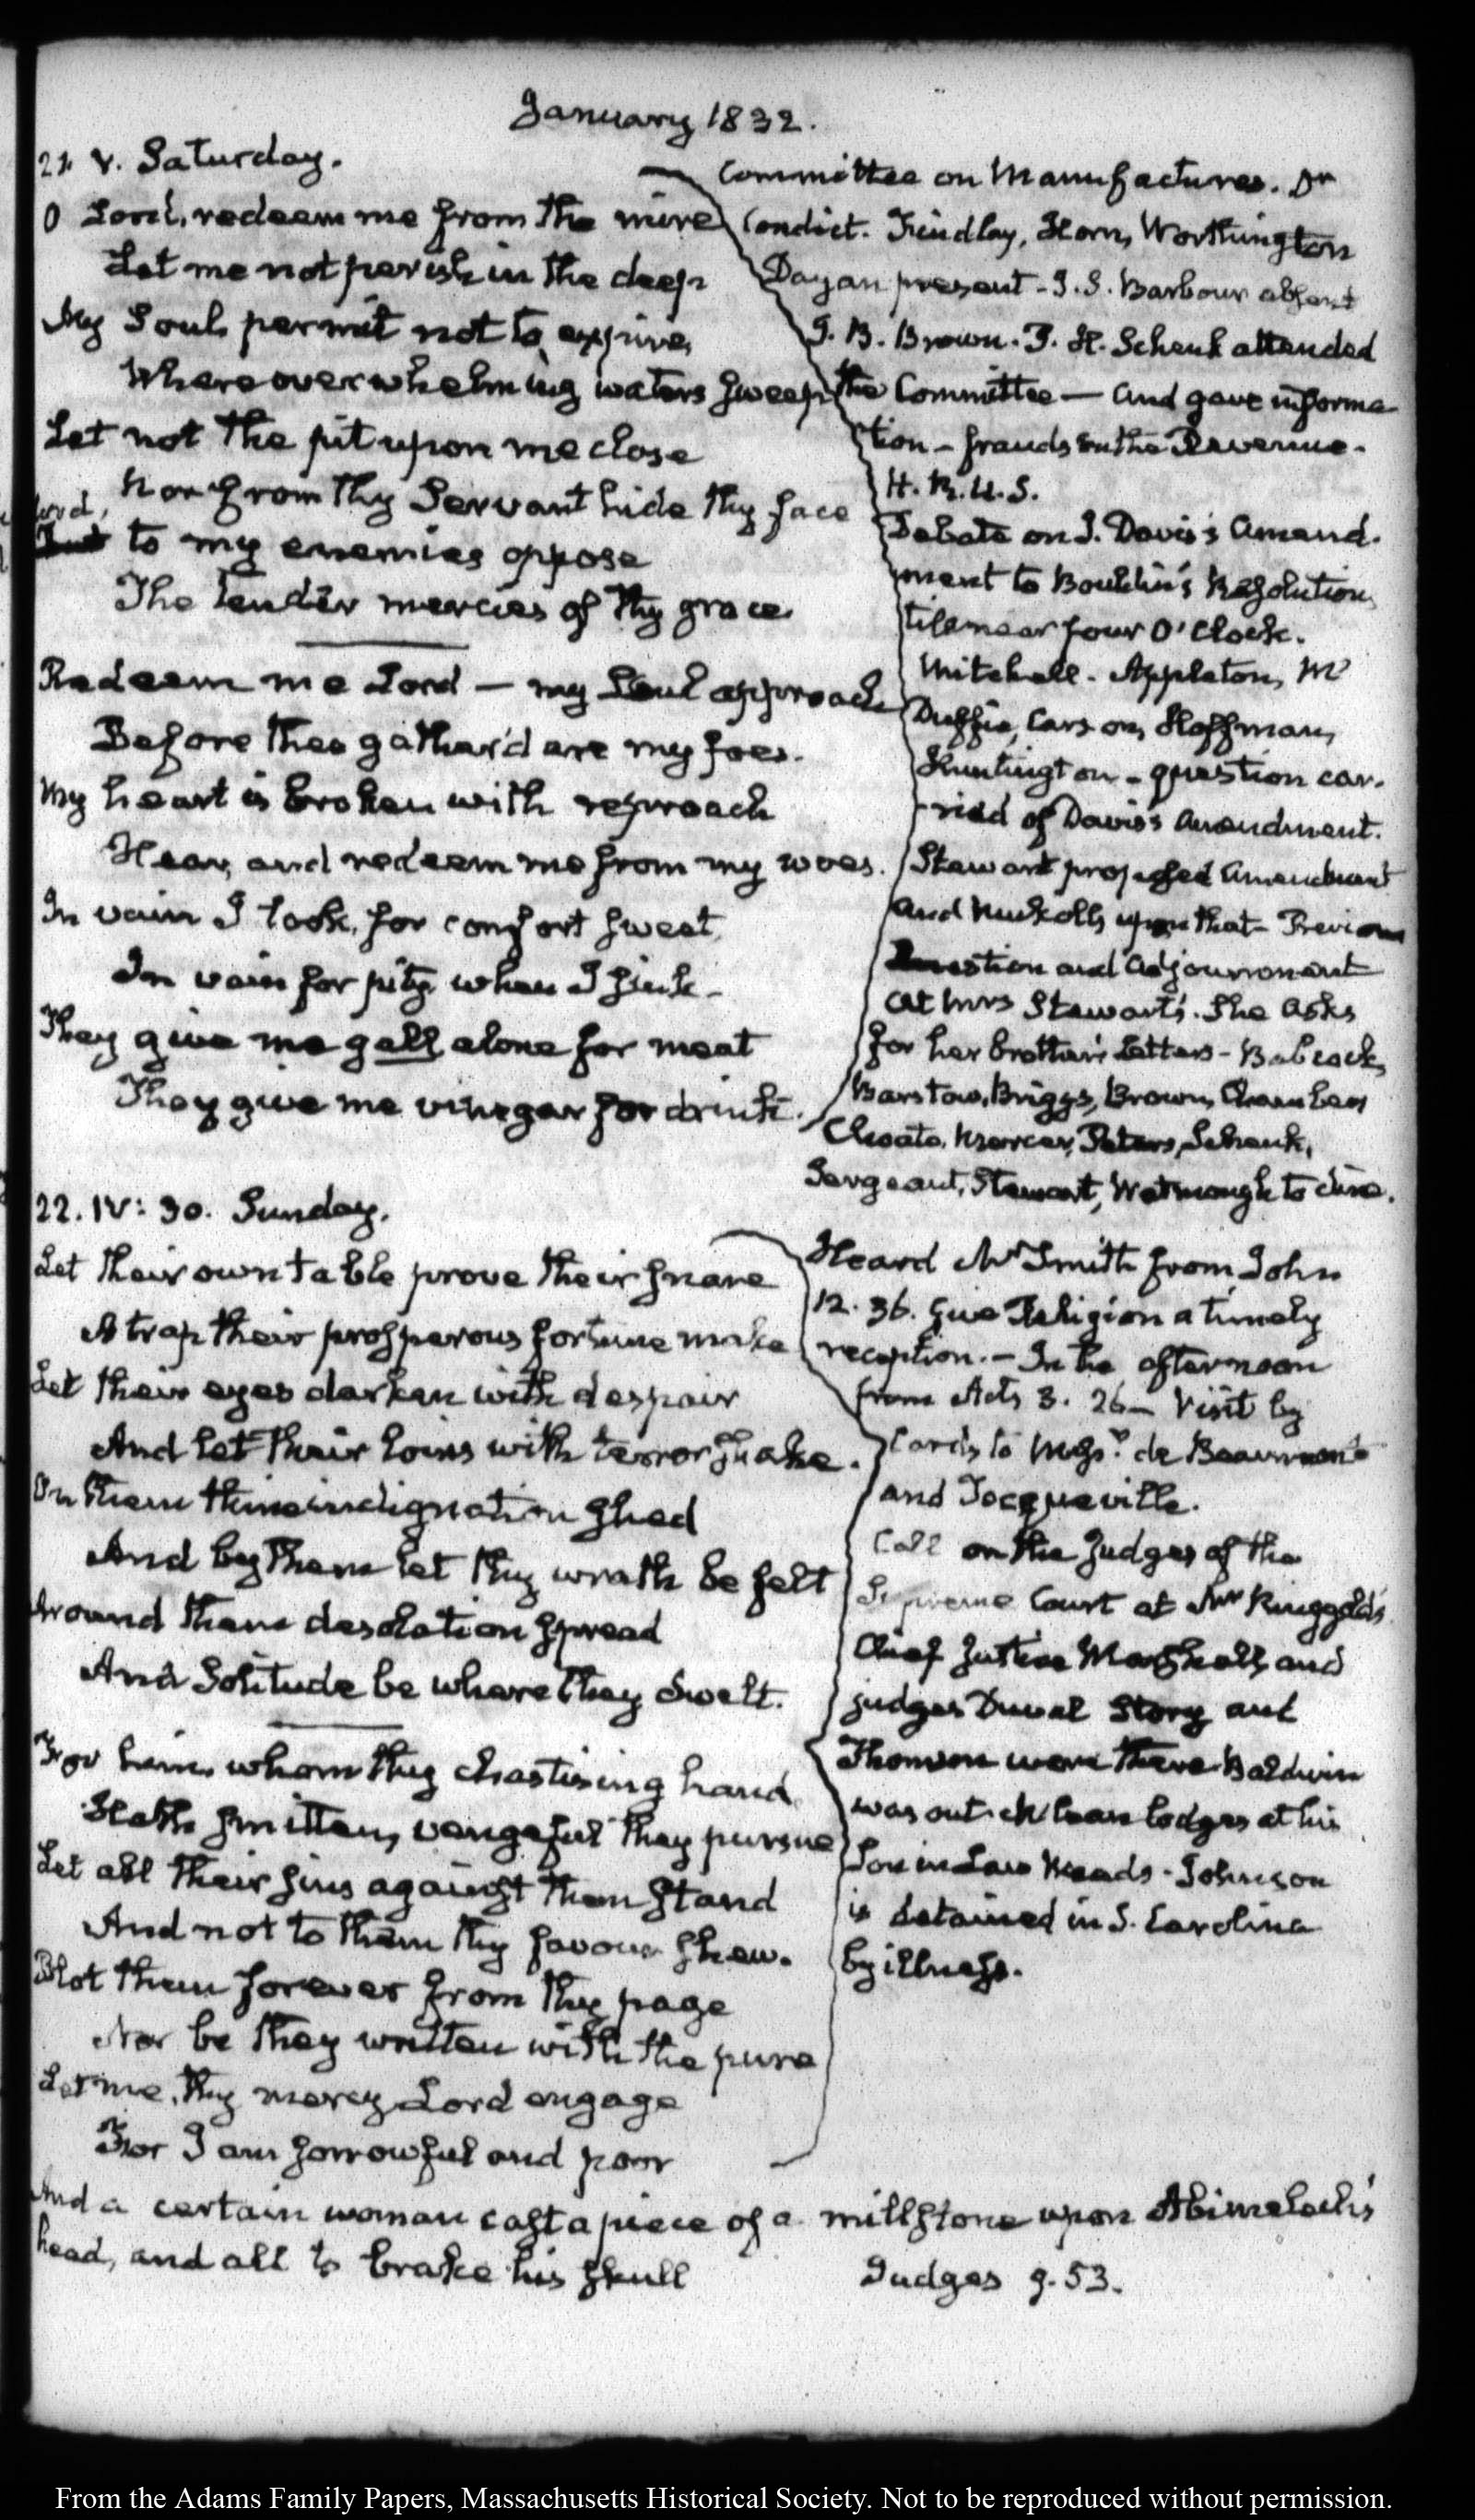 January 1832.
21. V. Saturday.
O Lord, redeem me from the mire
Let me not perish in the deep
My Soul, permit not to expire,
Where overwhelming waters sweep
Let not the pit upon me close
Nor from thy Servant hide thy face
Lord,
to my enemies oppose
The tender mercies of thy grace.
Redeem me Lord — my Soul approach
Before thee gather'd are my foes.
My heart is broken with reproach
Hear, and redeem me from my woes.
In vain I look, for comfort sweet,
In vain for pity when I sink —
They give me gall alone for meat
They give me vinegar for drink.
Committee on Manufactures. Dr
Condict. Findlay, Horn, Worthington
Dayan present - J. S. Barbour absent
J. B. Brown. F. H. Schenk attended
the Committee — and gave informa-
tion — frauds on the Revenue.
H. R. U. S.
Debate on J. Davis's amend-
ment to Bouldin's Resolution,
till near four O'Clock.
Mitchell. Appleton, Mc
Duffie, Carson, Hoffman,
Huntington — question car-
ried of Davis's amendment.
Stewart proposed amendment
and Nuckolls upon that — Previous
Question and adjournment
At Mrs Stewart's. She asks
for her brother's Letters — Babcock,
Barstow, Briggs, Brown, Chamber
Choate, Mercer, Peters, Schenk,
Sergeant, Stewart, Watmough to dine.
22. IV: 30. Sunday.
Let their own table prove their snare
A trap their prosperous fortune make
Let their eyes darken with despair
And let their loins with terror quake.
On them thine indignation shed
And by them let thy wrath be felt
Around them desolation spread
And Solitude be where they dwelt.
For him, whom thy chastising hand
Hath smitten, vengeful they pursue
Let all their sins against them stand
And not to them thy favour shew.
Blot them forever from thy page
Nor be they written with the pure
Let me, thy mercy Lord engage
For I am sorrowful and poor
Heard Mr Smith from John
12. 36. Give Religion a timely
reception. — In the afternoon
from Acts 3. 26 — Visit by
Cards to Messrs. de Beaumont
and Tocqueville.
Call on the Judges of the
Supreme Court at Mr Ringgold's
Chief Justice Marshall, and
judges Duval Story and
Thomson were there. Baldwin
was out. McLean lodges at his
Son in Law Meads — Johnson
is detained in S. Carolina
by illness.
And a certain woman cast a piece of a millstone upon Abimelech's
head, and all to brake his skull Judges 9. 53.
From the Adams Family Papers, Massachusetts Historical Society. Not to be reproduced without permission.